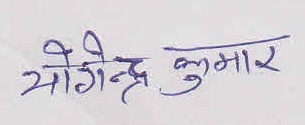 योगेन्द्र कुमार